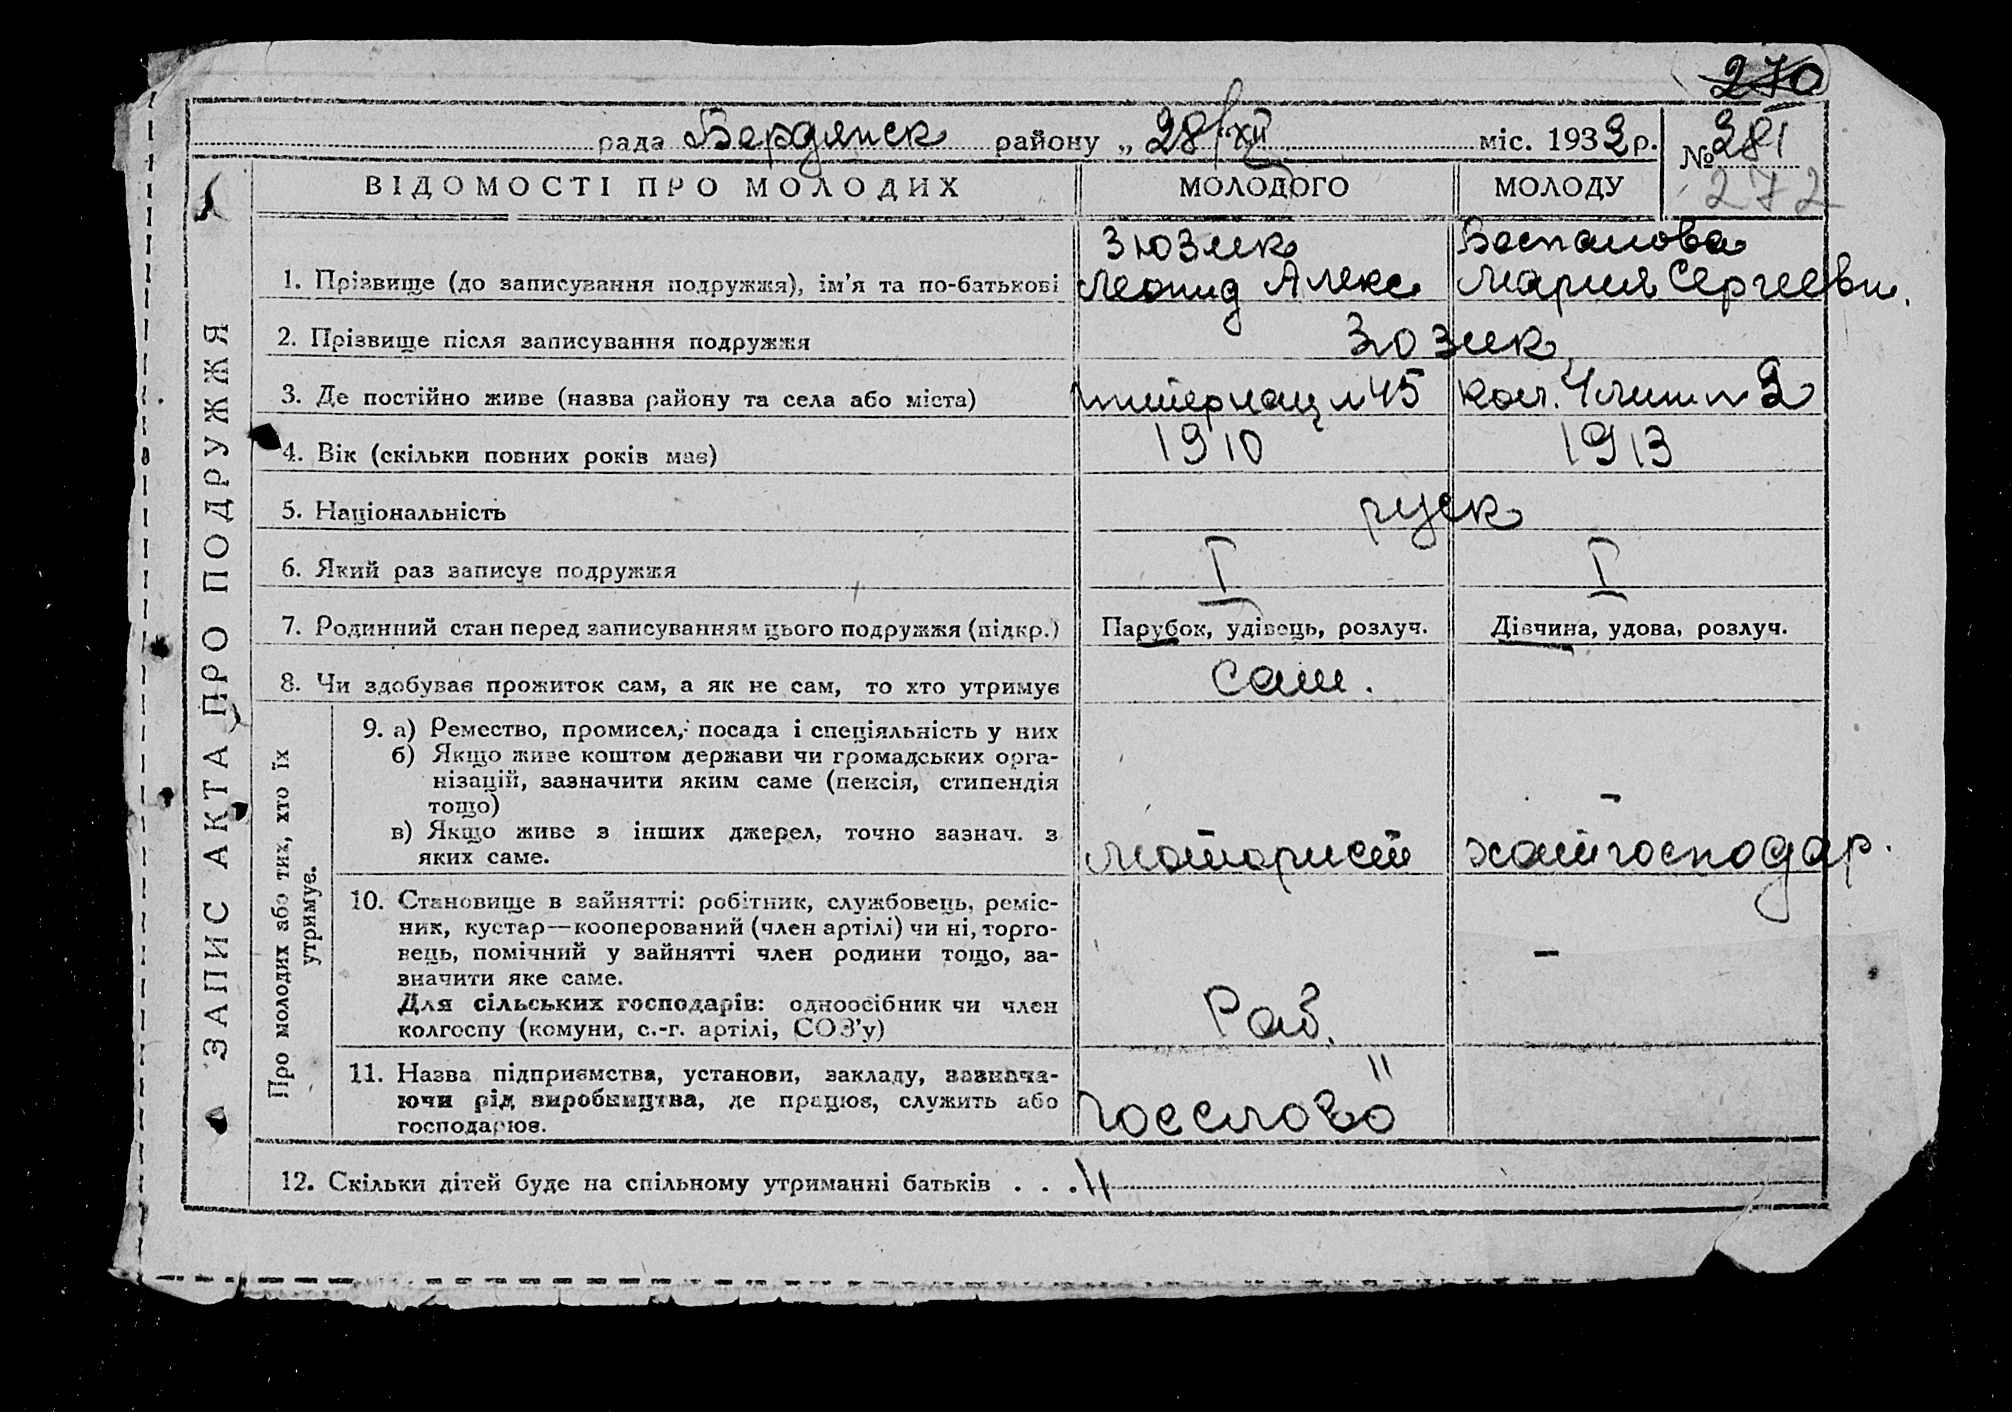 270
рада Бердянск району „ 28/XII міс. 1932 р.
№ 281
272
ВІДОМОСТІ ПРО МОЛОДИХ МОЛОДОГО МОЛОДУ
ЗАПИС АКТА ПРО ПОДРУЖЖЯ
Зюзик Беспалова
1. Прізвище (до записування подружжя), ім'я та по-батькові Леонид Алекс Мария Сергеевн.
2. Прізвище після записування подружжя Зюзик
3. Де постійно живе (назва району та села або міста) Интернац 45 2
4. Вік (скільки повних років має) 1910 1913
5. Національність руск
6. Який раз записує подружжя I I
7. Родинний стан перед записуванням цього подружжя (підкр.) Парубок, удівець, розлуч. Дівчина, удова, розлуч.
8. Чи здобуває прожиток сам, а як не сам, то хто утримує сам.
Про молодих або тих, хто їх
утримує.
9. а) Ремество, промисел, посада і спеціяльність у них
б) Якщо живе коштом держави чи громадських орга-
нізацій, зазначити яким саме (пенсія, стипендія
тощо) -
в) Якщо живе з інших джерел, точно зазнач. з
яких саме. моторист хатгосподар.
10. Становище в зайнятті: робітник, службовець, реміс-
ник, кустар—кооперований (член артілі) чи ні, торго-
вець, помічний у зайнятті член родини тощо, за- -
значити яке саме.
Для сільських господарів: одноосібник чи член Раб.
колгоспу (комуни, с.-г. артілі, СОЗ'у)
11. Назва підприємства, установи, закладу, зазнача-
ючи рід виробництва, де працює, служить або
господарює.
12. Скільки дітей буде на спільному утриманні батьків . . .